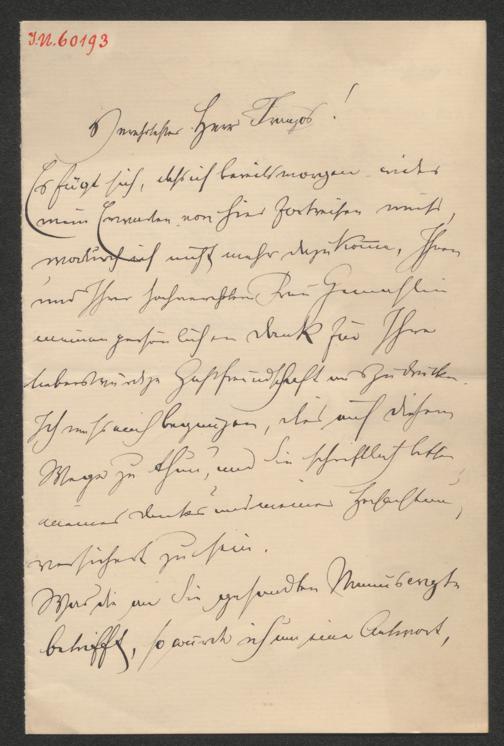 J.N. 60193
Verehrtester Herr Franzos!
Es fügt sich, daß ich bereits morgen wider
mein Erwarten von hier fortreisen muß,
wodurch ich nicht mehr dazukomme, Ihnen
und Ihrer hochverehrten Frau Gemahlin
meinen persönlichen Dank für Ihre
liebenswürdige Gastfreundschaft auszudrücken.
Ich muß mich begnügen, dies auf diesem
Wege zu thun, und Sie schriftlich bitten
meines Danks und meiner Hochachtung
versichert zu sein.
Was die an Sie gesandten Manuscripte
betrifft, so würde ich um eine Antwort,